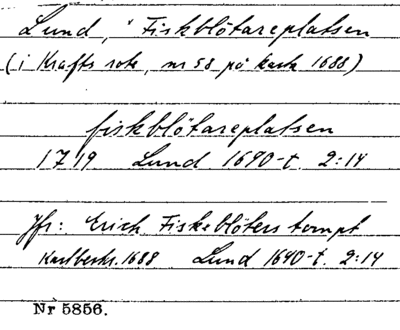 Lund, "Fiskblötareplatsen
(i Krafts rote, nr 58 på karta 1688)
fiskblötareplatsen
1719 Lund 1690-t. 2:14
Jfr: Erich Fiskeblöters tompt
Kartbeskr. 1688 Lund 1690-t. 2:14
Nr 5856.